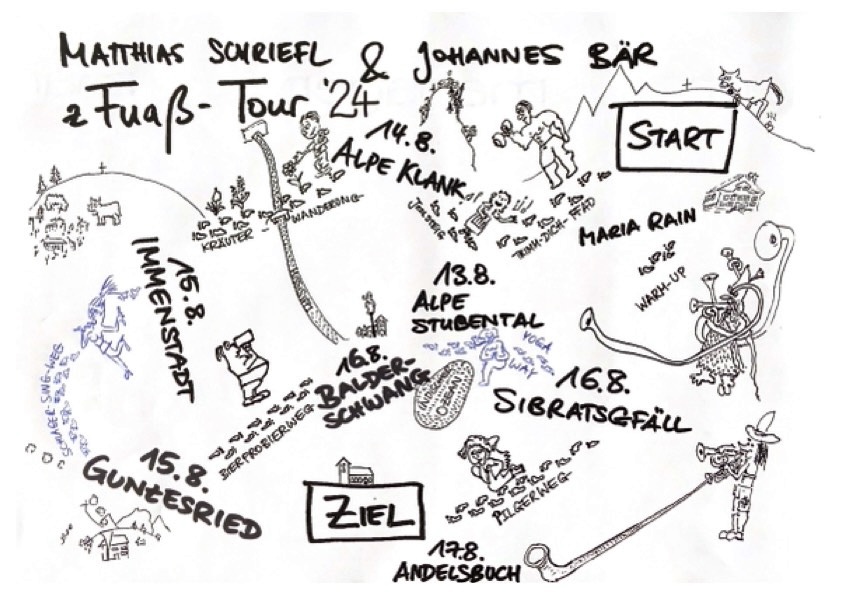 MATTHIAS SCHRIEFL & JOHANNES BÄR
z Fuaß-Tour '24
START
14.8.
ALPE KLANK
KRÄUTER
WANDERUNG
TRIMM-DICH-PFAD
MARIA RAIN
WARM-UP
13.8.
ALPE
STUBENTAL
YOGA
WAY
15.8.
IMMENSTADT
16.8.
BALDER-
SCHWANG
OZEAN
16.8.
SIBRATSGFÄLL
BIERPROBIERWEG
15.8.
GUNZESRIED
ZIEL
PILGERWEG
17.8.
ANDELSBUCH